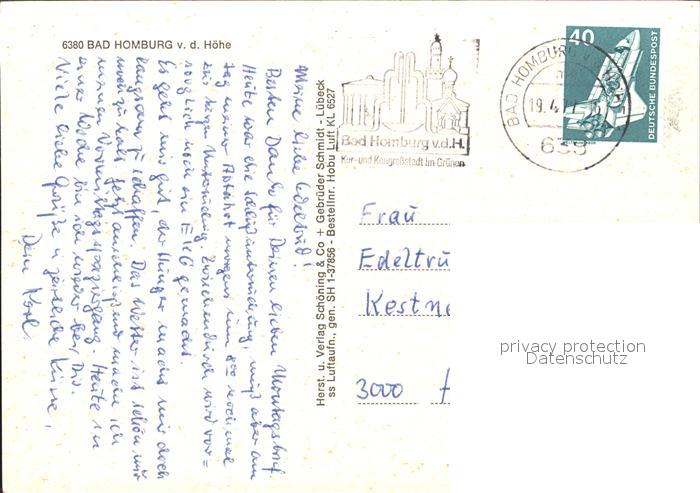 6380 BAD HOMBURG v. d. Höhe
Meine liebe Edeltrud!
Besten Dank für Deinen lieben Montagsbrief.
Heute war die Schlußuntersuchung, muß aber am
Tag meiner Abfahrt morgens um 8⁰⁰ noch mal
zur Untersuchung. Zwischendurch wird vor=
sorglich noch ein EKG gemacht.
Es geht mir gut, der Hunger macht mir doch
langsam zu schaffen. Das Wetter ist schön nur
noch zu kalt. Jetzt anschließend mache ich
meinen Vormittagsspaziergang. Heute in
einer Woche bin ich wieder bei Dir.
Viele liebe Grüße u. zärtliche Küsse,
Dein Karl.
Herst. u. Verlag Schöning & Co + Gebrüder Schmidt - Lübeck
ss Luftaufn., gen. SH 1-37856 - Bestellnr. Hobu Luft KL 6527
Bad Homburg v.d.H.
Kur- und Kongreßstadt im Grünen
BAD HOMBURG v
19.4.7
638
40
DEUTSCHE BUNDESPOST
Frau
Edeltru
Kestne
3000 H
privacy protection
Datenschutz